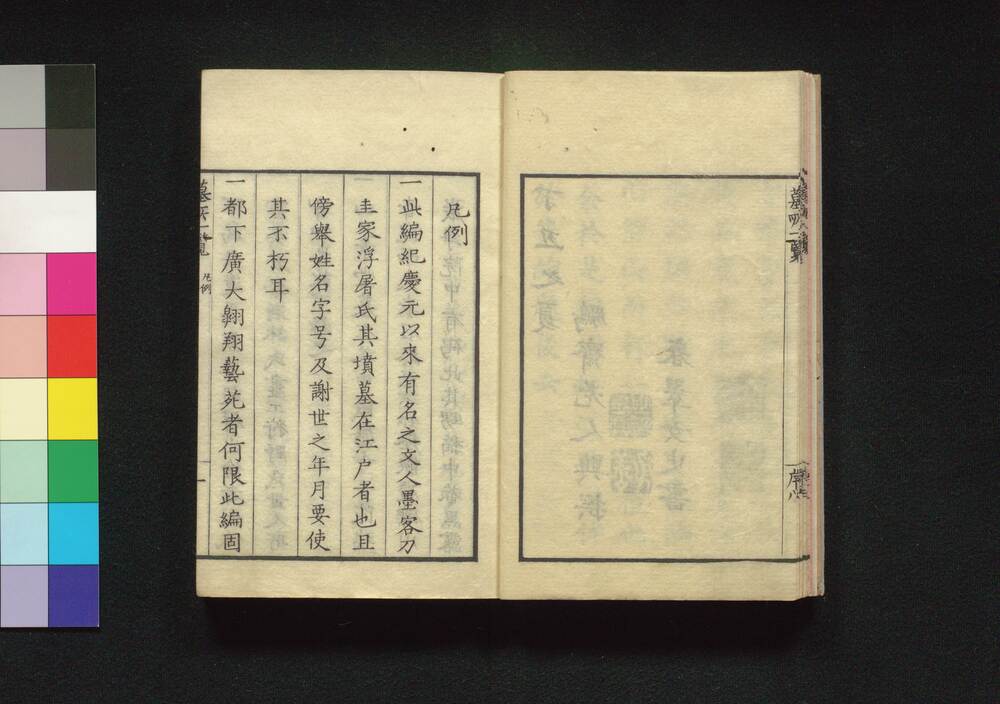 凡例
一此編紀慶元以來有名之文人墨客刀
圭家浮屠氏其墳墓在江户者也且
傍舉姓名字号及謝世之年月要使
其不朽耳
一都下廣大翺翔藝苑者何限此編固
凡例